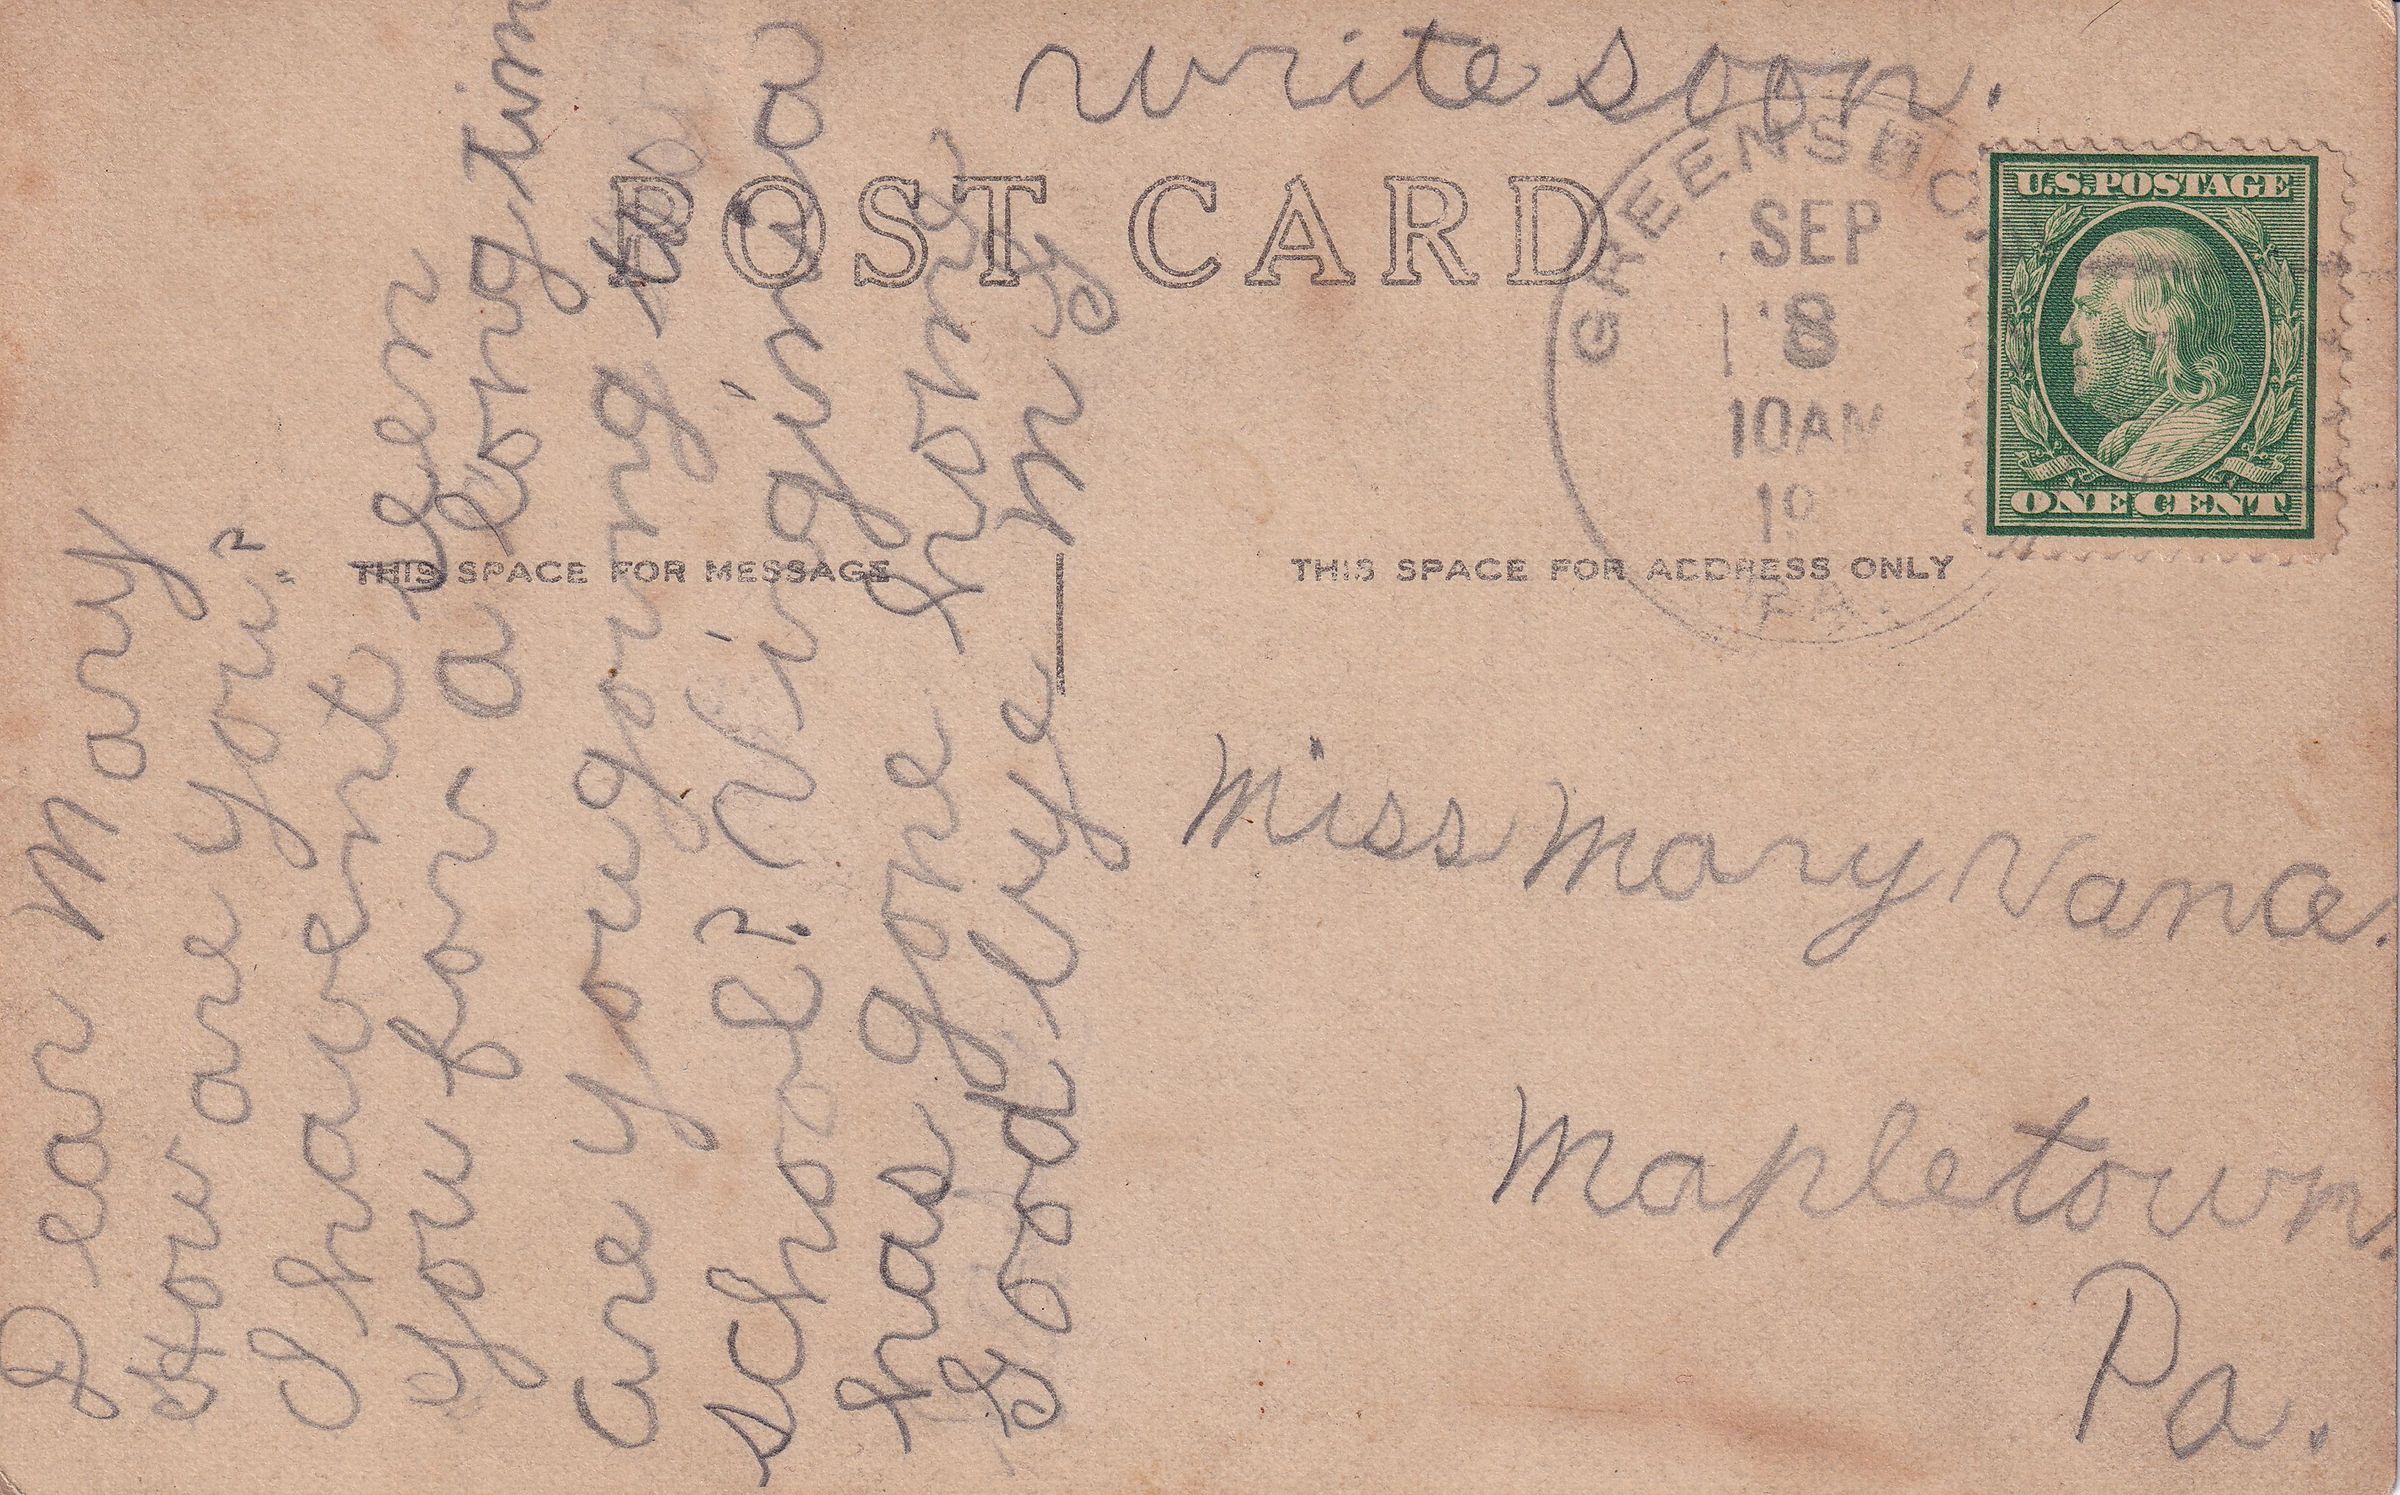 POST CARD
THIS SPACE FOR MESSAGE
THIS SPACE FOR ADDRESS ONLY
Dear Mary
How are you?
I havent seen
you for a long tim
are you going to
school? Virginia
has gone home
Good bye my
write soon.
Miss Mary Vance.
Mapletown.
Pa.
GREENSBO
SEP
8
10AM
19
PA.
U.S. POSTAGE
ONE CENT